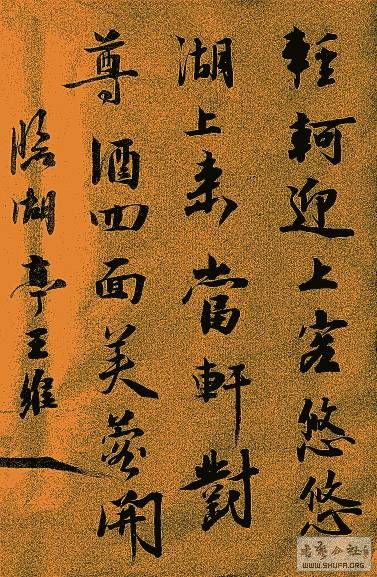 輕軻迎上客悠悠
湖上来當軒對
尊酒四面芙蓉開
臨湖亭王維
WWW.SHUFA.ORG